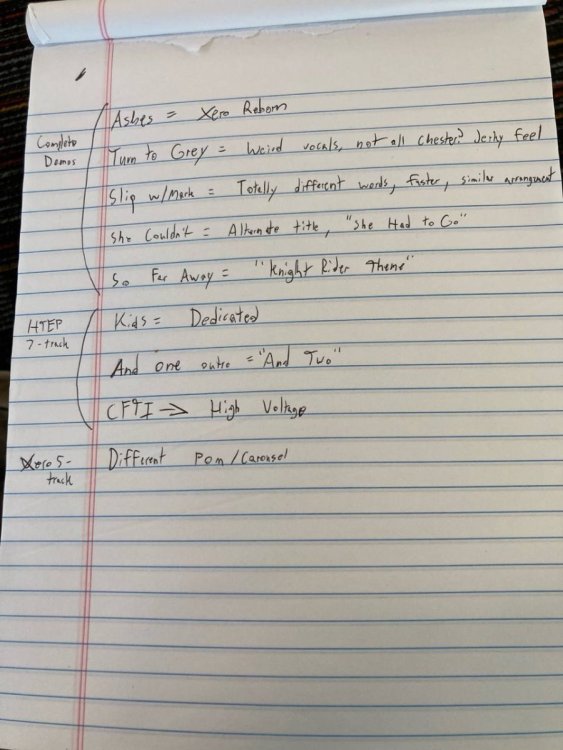 Complete
Demos
Ashes = Xero Reborn
Turn to Grey = Weird vocals, not all Chester? Jerky feel
Slip w/Mark = Totally different words, faster, similar arrangement
She Couldn't = Alternate title, "She Had to Go"
So Far Away = "Knight Rider Theme"
HTEP
7-track
Kids = Dedicated
And One outro = "And Two"
→ High Voltage
Xero 5-
track
Different POM/Carousel